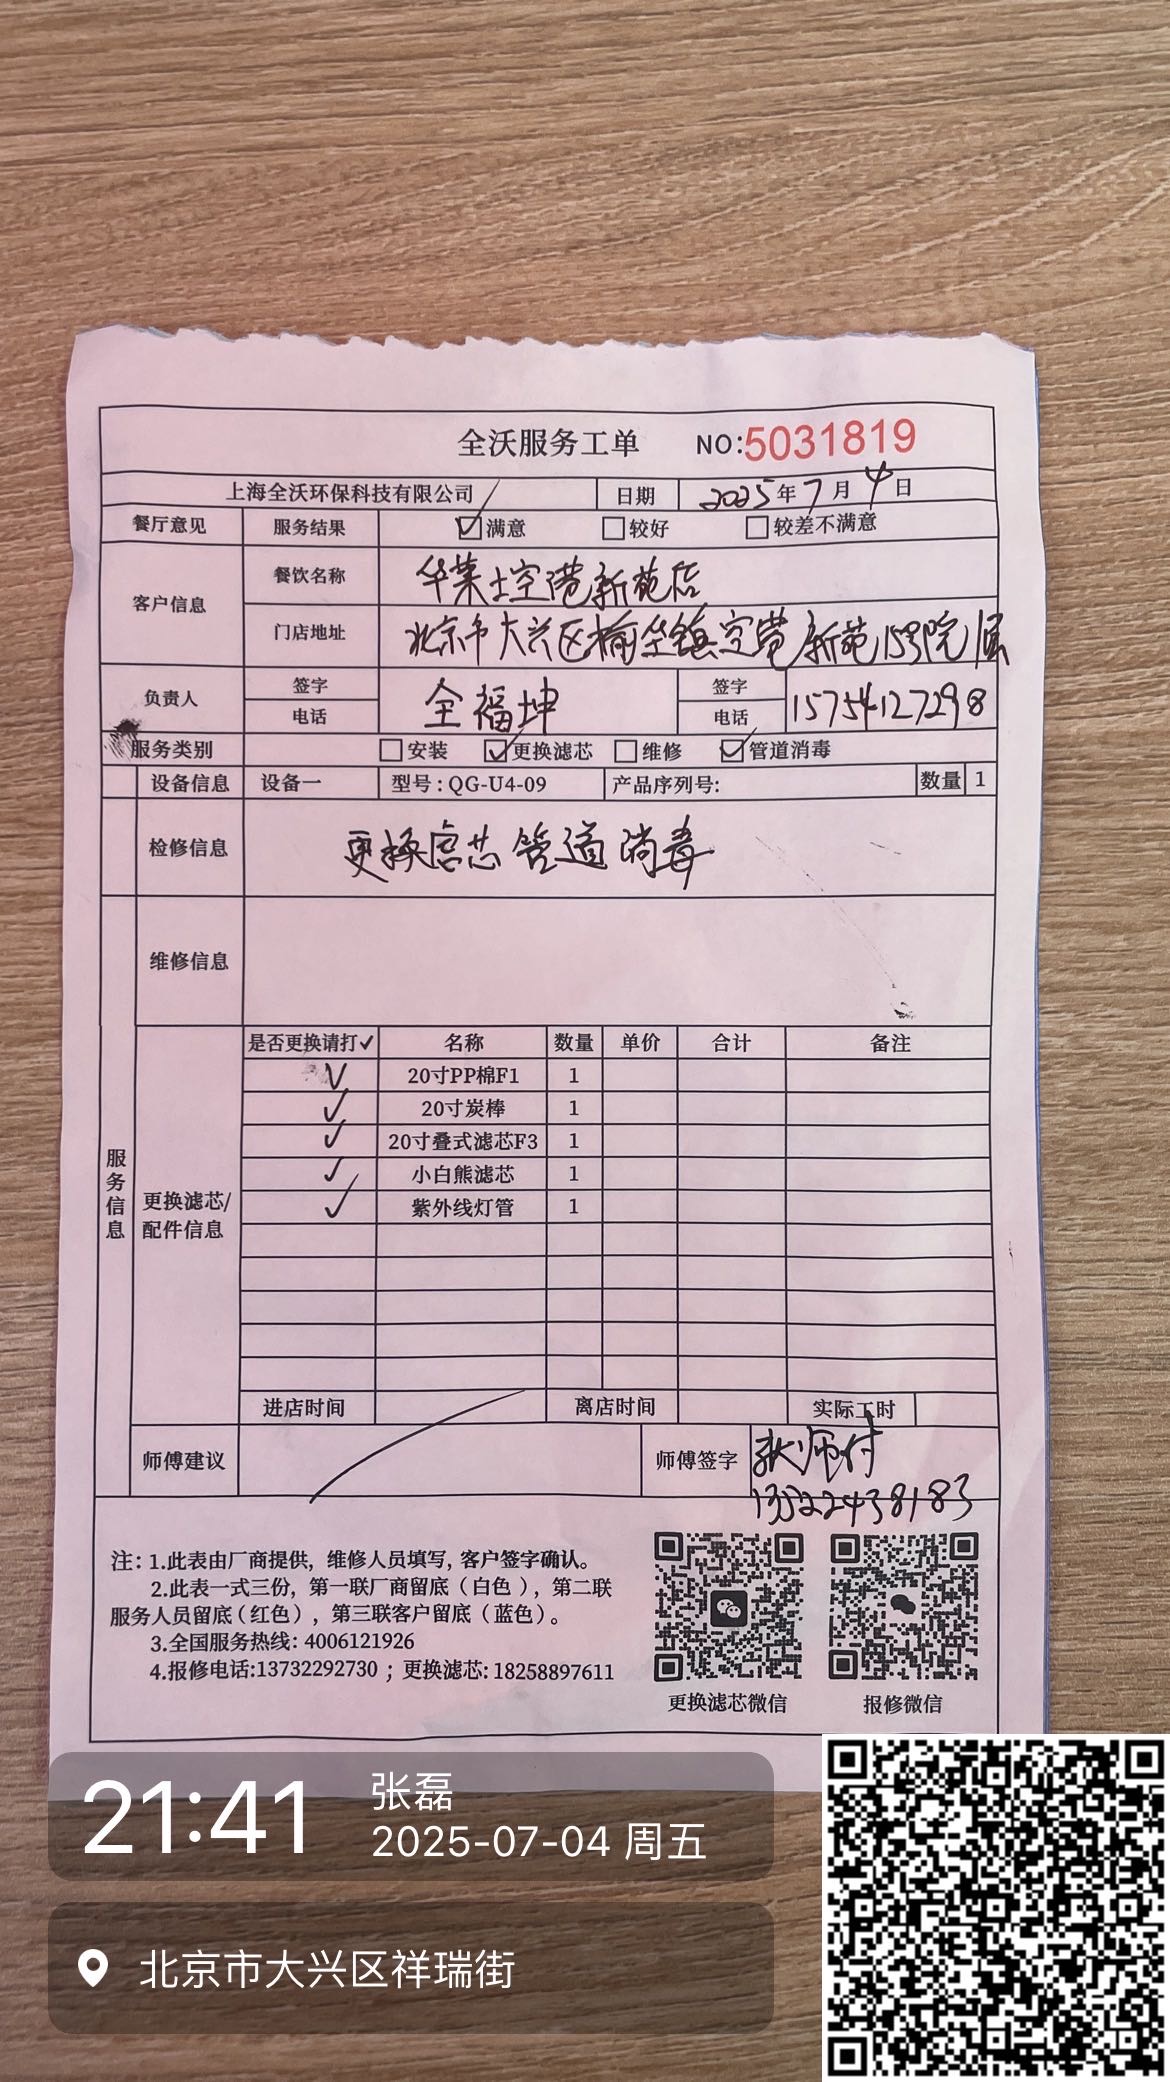 全沃服务工单 NO:5031819
上海全沃环保科技有限公司 日期 2025年7月4日
餐厅意见 服务结果 ☑满意 ☐较好 ☐较差不满意
客户信息 餐饮名称 华莱士空港新苑店
门店地址 北京市大兴区榆垡镇空港新苑15号院1层
负责人 签字 全福坤 签字
电话 电话 15754127298
服务类别 ☐安装 ☑更换滤芯 ☐维修 ☑管道消毒
设备信息 设备一 型号:QG-U4-09 产品序列号: 数量 1
检修信息 更换滤芯 管道消毒
维修信息
服务信息
更换滤芯/配件信息
是否更换请打✓ 名称 数量 单价 合计 备注
✓ 20寸PP棉F1 1
✓ 20寸炭棒 1
✓ 20寸叠式滤芯F3 1
✓ 小白熊滤芯 1
✓ 紫外线灯管 1
进店时间 离店时间 实际工时
师傅建议 师傅签字 张师付
13522438183
注: 1.此表由厂商提供, 维修人员填写, 客户签字确认。
2.此表一式三份, 第一联厂商留底(白色), 第二联
服务人员留底(红色), 第三联客户留底(蓝色)。
3.全国服务热线: 4006121926
4.报修电话:13732292730 ; 更换滤芯: 18258897611
更换滤芯微信 报修微信
21:41 张磊
2025-07-04 周五
北京市大兴区祥瑞街